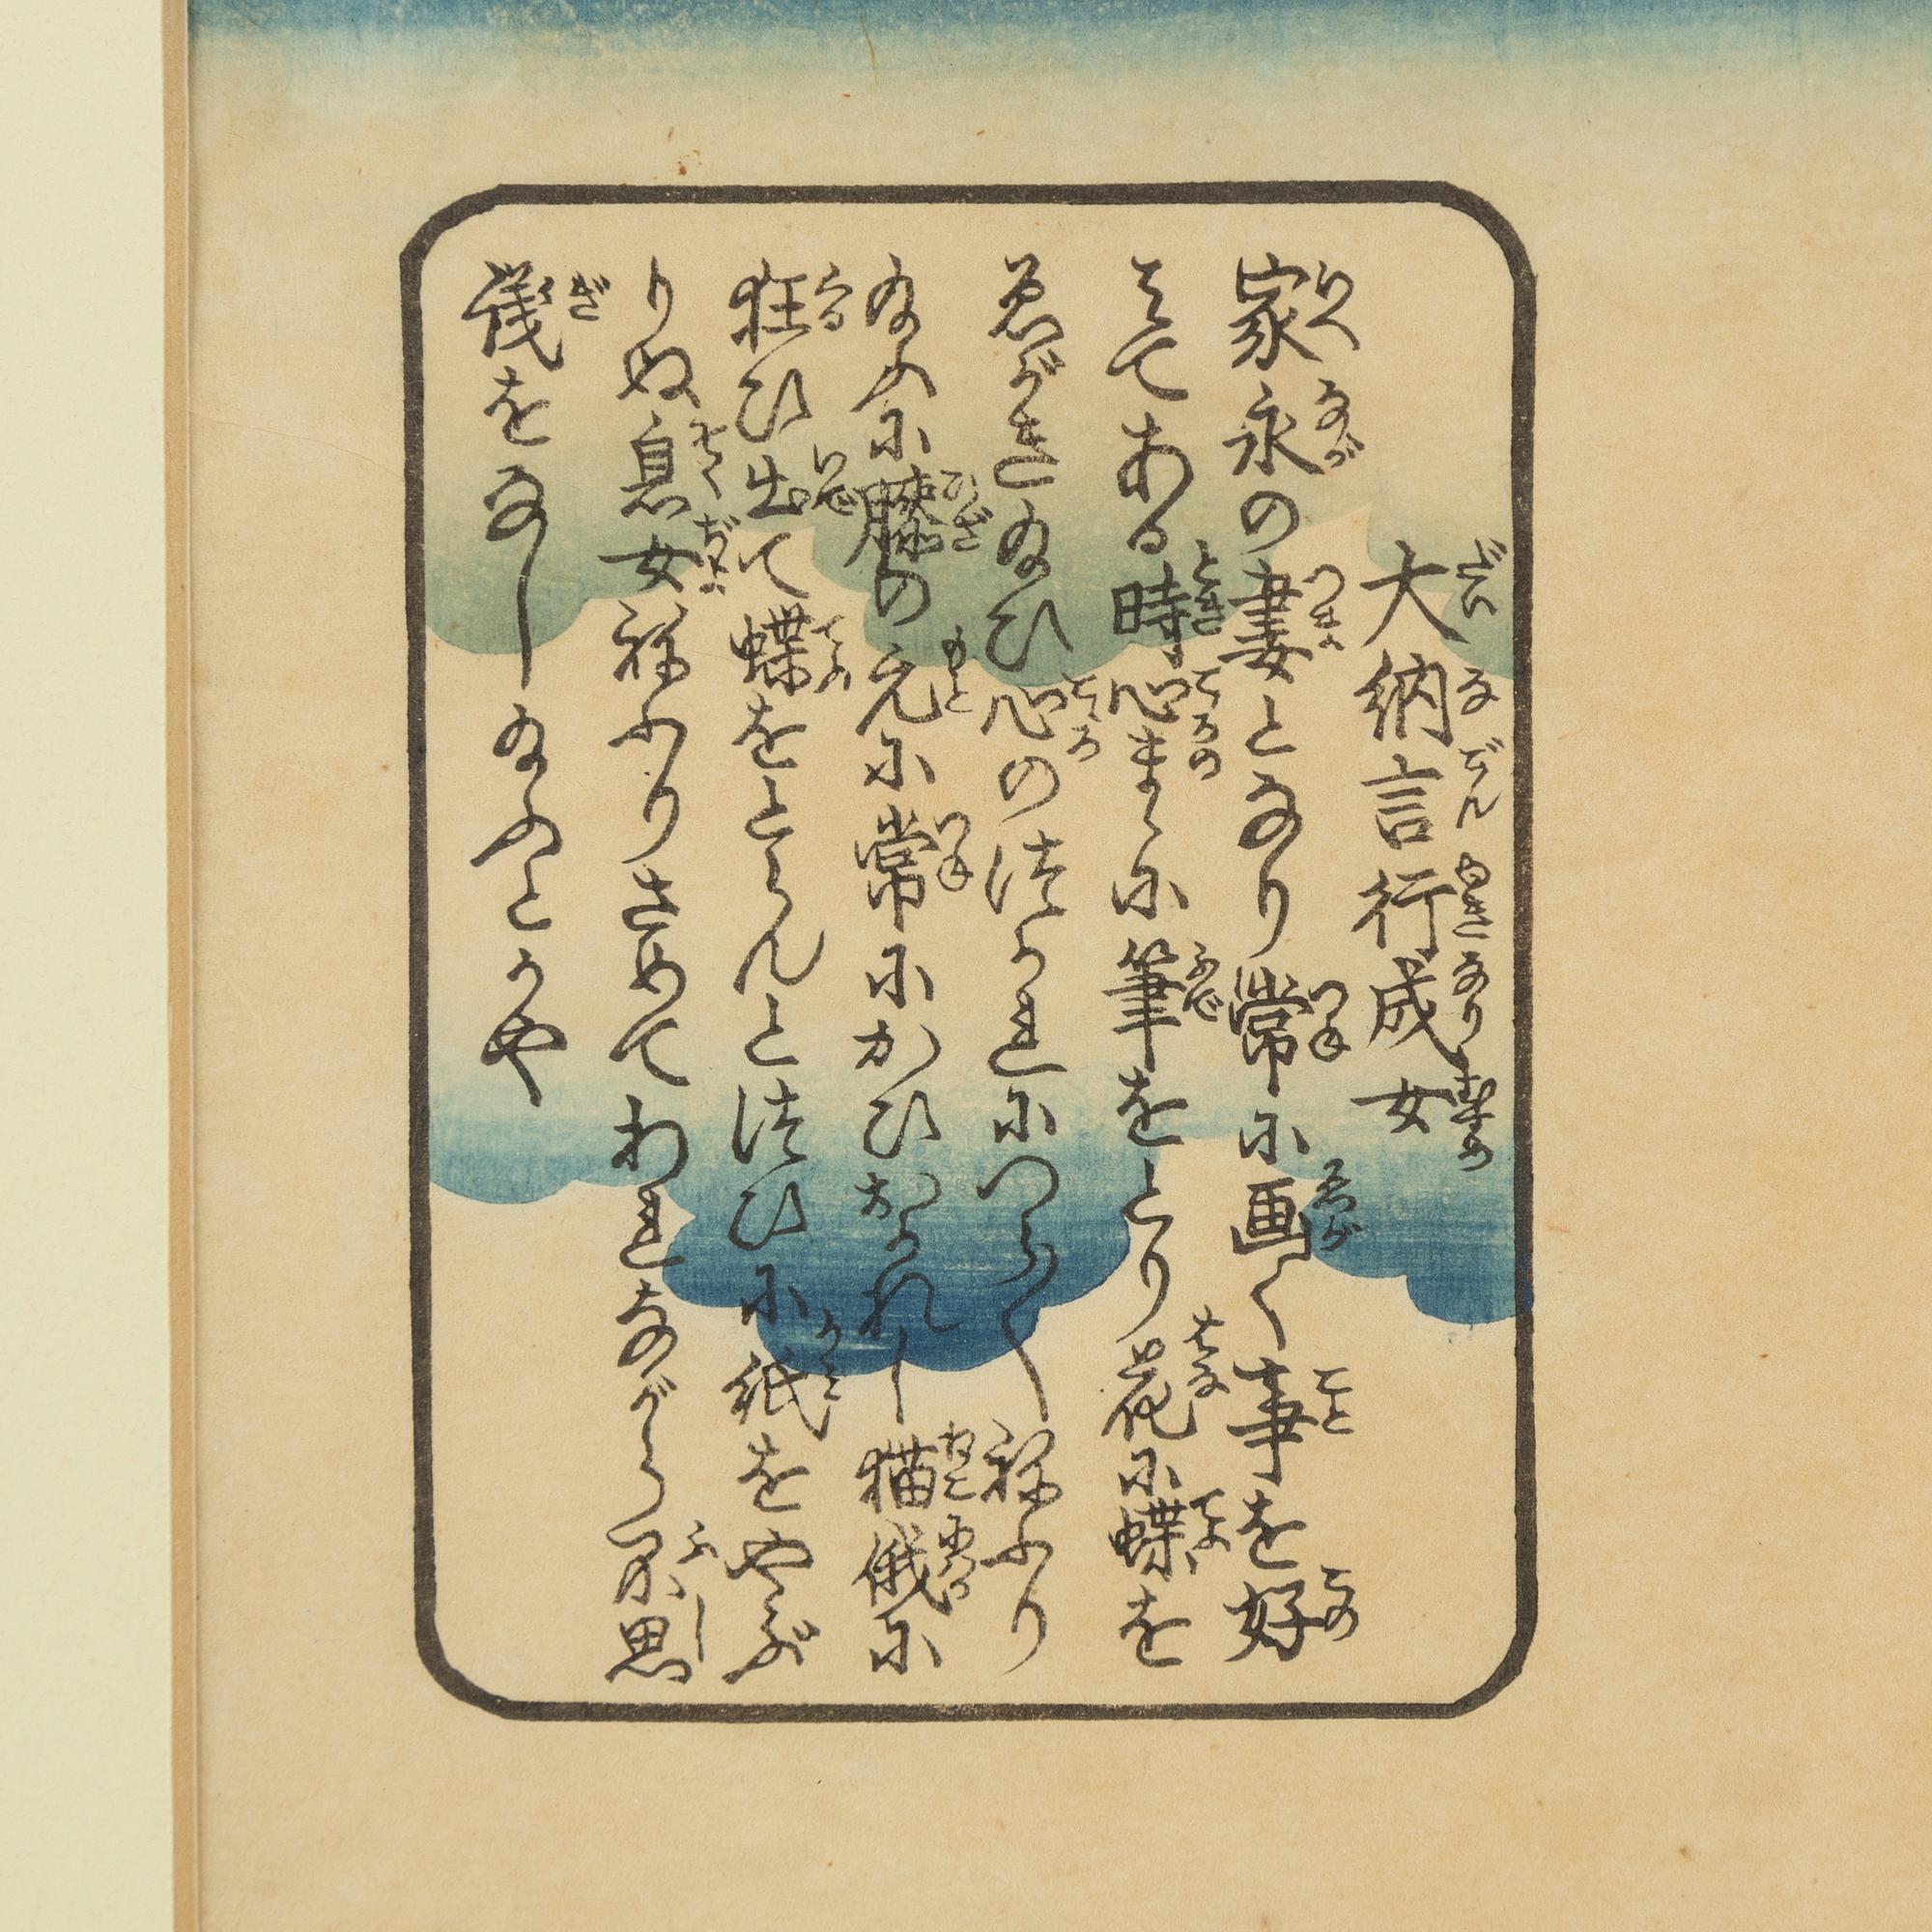 大納言行成女
家永の妻となり常に画く事を好
みてある時心まゝに筆をとり花に蝶を
ゑがき給ひ心のつかれにつら〳〵ねふり
給ふに膝の元に常にかひおかれし猫俄に
狂ひ出て蝶をとらんとつひに紙をやぶ
りぬ息女ねふりさめてわれながら不思
議をなし給ふとかや